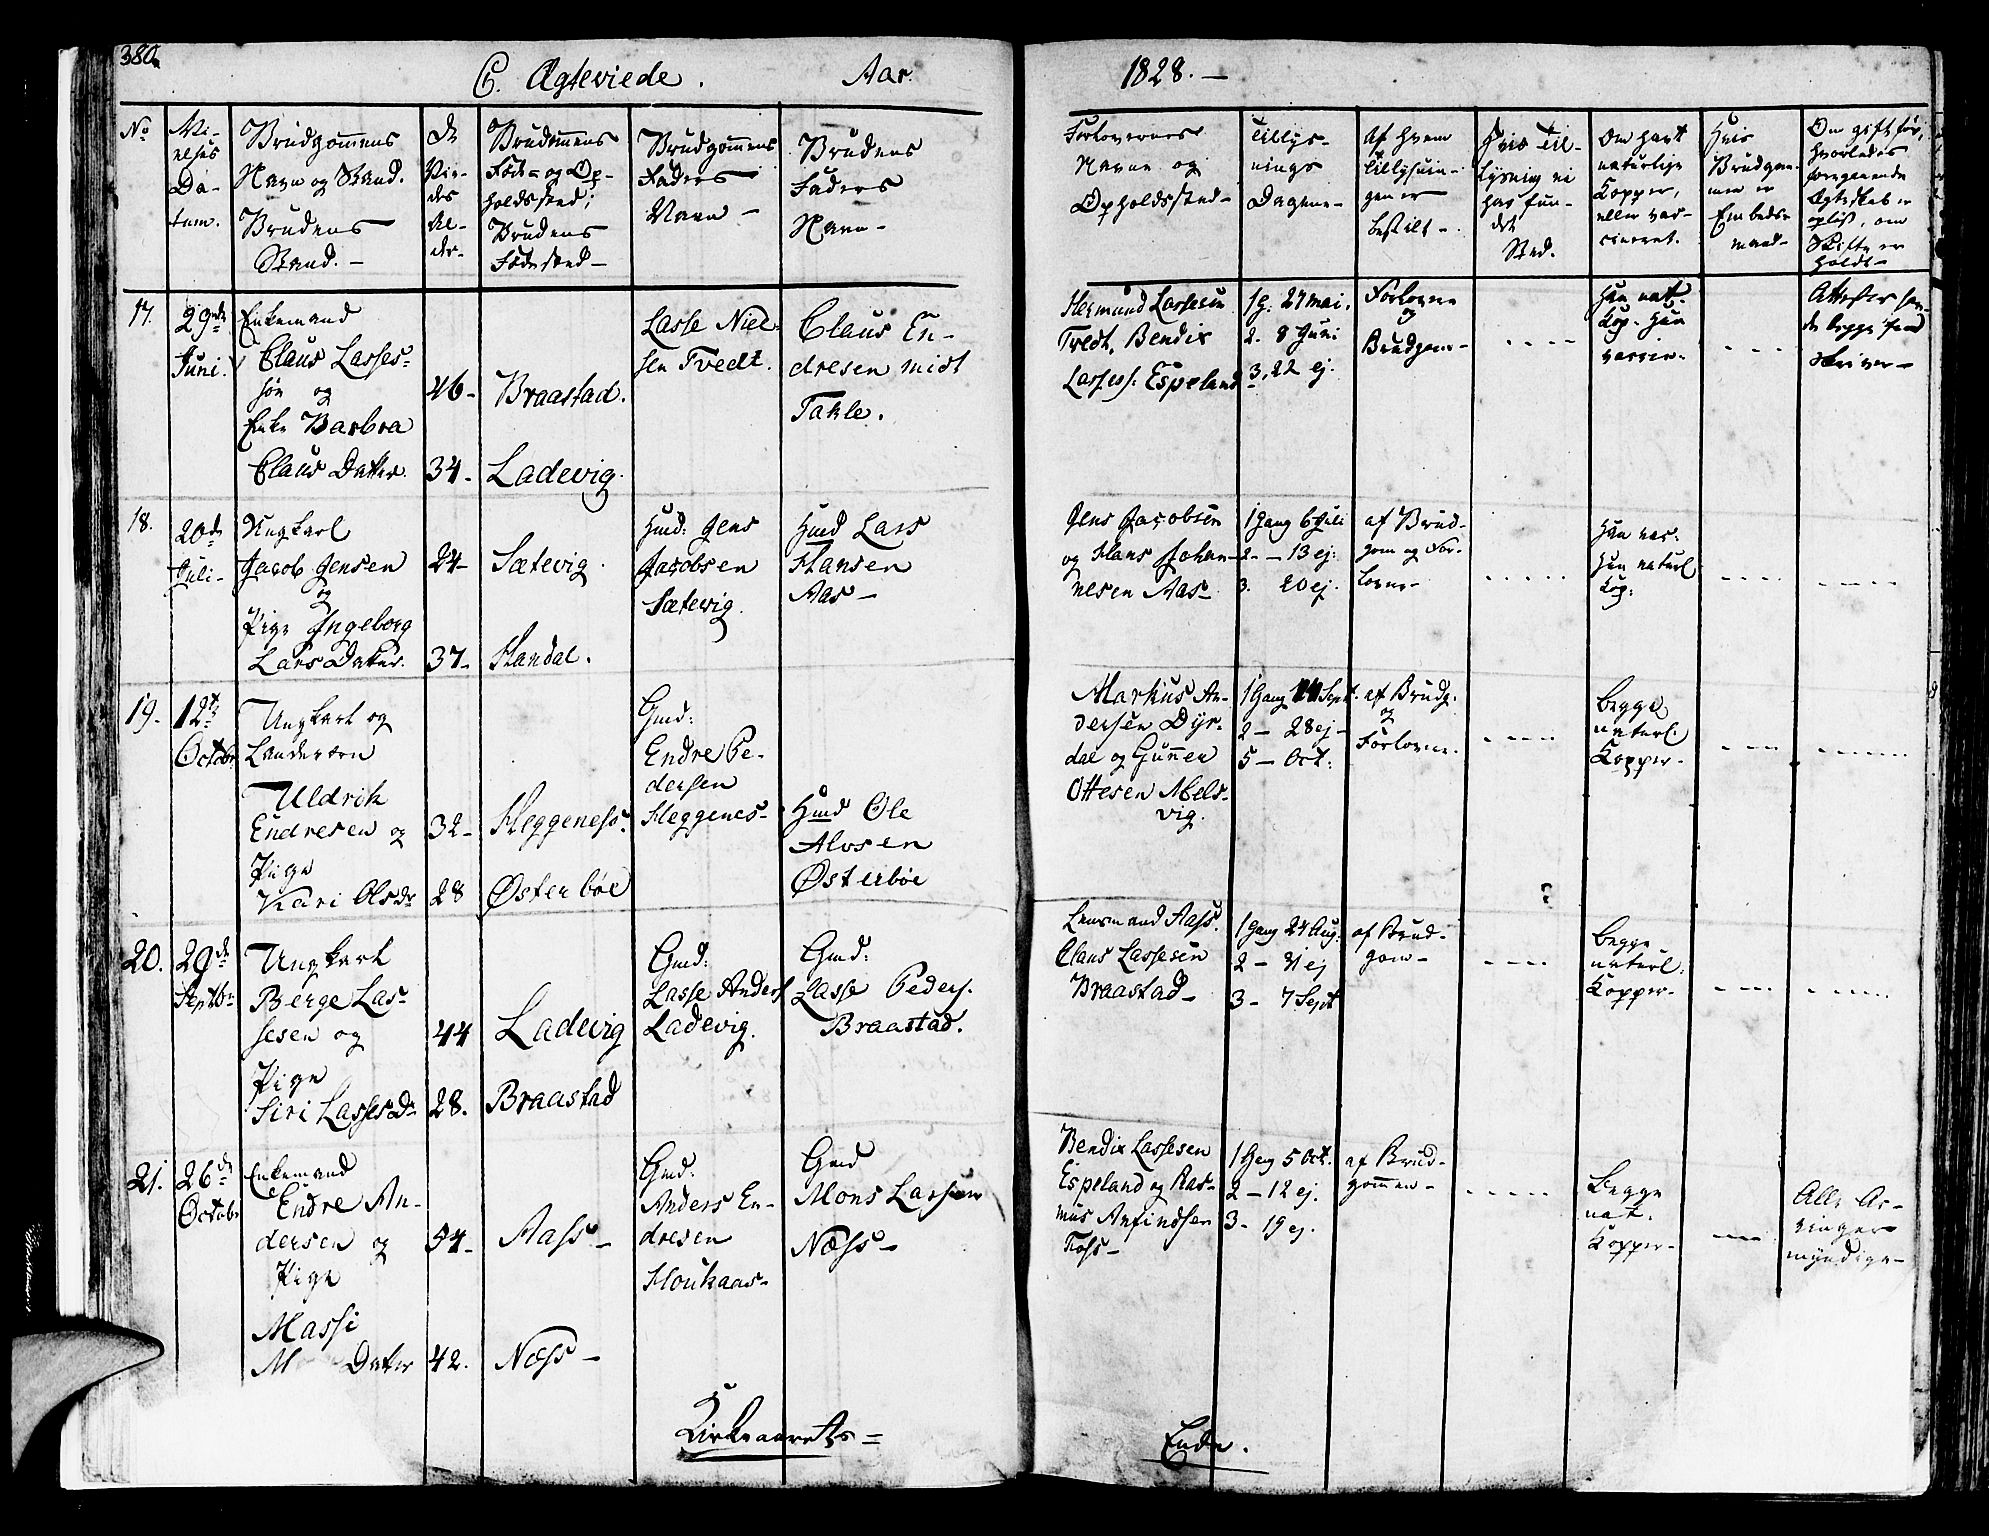 380.
C. Ægteviede. Aar 1828. —
No
Vi-
elses
Da-
tum.
Brudgommens
Navn og Stand.
Brudens
Stand. —
De
Vie-
des
Al-
der-
Brudommens
Føde- og Op-
holdssted;
Brudens
Fødested —
Brudgommens
Faders
Navn —
Brudens
Faders
Navn —
Forlovernes
Navne og
Opholdssted —
Tillys-
nings
Dagene —
Af hvem
Tillysnin-
gen er
bestilt —
Hvis Til-
lysning ei
har fun-
det
Sted.
Om havt
naturlige
Kopper,
eller vac-
cineret.
Hvis
Brudgom-
men er
Embeds-
mand —
Om gift før,
hvorledes
foregaaende
Ægteskab er
opløst, om
Skifte er
holdt —
17.
29de
Juni.
Enkemand
Claus Lasses-
søn og
Enke Barbra
Claus Datter.
46 —
34 —
Braastad.
Ladevig.
Lasse Niel-
sen Tvedt.
Claus En-
dresen midt
Takle.
Hermund Lassesen
Tvedt, Bendix
Lasses: Espeland
1 g. 27 mai.
2. 8 Juni
3, 22 ej.
Forlovere
og
Brudgom —
Han nat.
Kop. Hun
vaccin.
Attester fra
de begge
skriver —
18.
20de
Juli —
Ungkarl
Jacob Jensen
og
Pige Ingeborg
Lars Datter.
24 —
37 —
Sætevig.
Handal.
Huusmd: Jens
Jacobsen
Sætevig.
Huusmd Lars
Hansen
Aas —
Jens Jacobsen
og Hans Johan-
nesen Aas —
1 Gang 6 Juli
2 — 13 ej.
3. 20 ej.
af Brud-
gom og For-
lovere
Han vac:
Hun naturl
Kop:
19.
12te
Octobr
Ungkarl og
Landeværn
Uldrik
Endresen og
Pige
Kari Olsdr
32 —
28
Heggeness.
Østerbøe
Gmd:
Endre Pe-
dersen
Heggenes —
Hmd Ole
Alvsen
Østerbøe
Markus An-
dersen Dyr-
dal og Gunner
Ottesen Mels-
vig.
1 Gang 14 Sept.
2 — 28 ej —
5 — Oct:
af Brudg:
og
Forlover.
begge
naturl.
Kopper —
20.
29de
Septbr
Ungkarl
Berge Las-
sesen og
Pige
Siri Lasses Dr
44
28.
Ladevig
Braastad
Gmd:
Lasse Anders
Ladevig.
Gmd:
Lasse Peders.
Braastad.
Lensmand Aass.
Claus Lassesen
Braastad —
1 Gang 24 Aug:
2 — 31 ej
3 — 7 Sept
af Brud-
gom —
begge
naturl.
Kopper —
21.
26de
Octobr
Enkemand
Endre An-
dersen og
Pige
Massi
M Dater
54 —
42.
Aass —
Næss —
Gmd:
Anders En-
dresen
Houkaas —
Gmd
Mons Larsen
Næss —
Bendix Lassesen
Espeland og Ras-
mus Anfindsen
Foss —
1 Gang 5 Oct.
2 — 12 ej.
3 — 19 ej.
af Brud-
gommen —
begge
nat.
Kopper —
Alle Ar-
vinger
myndige —
Kirkeaarets = Ende.